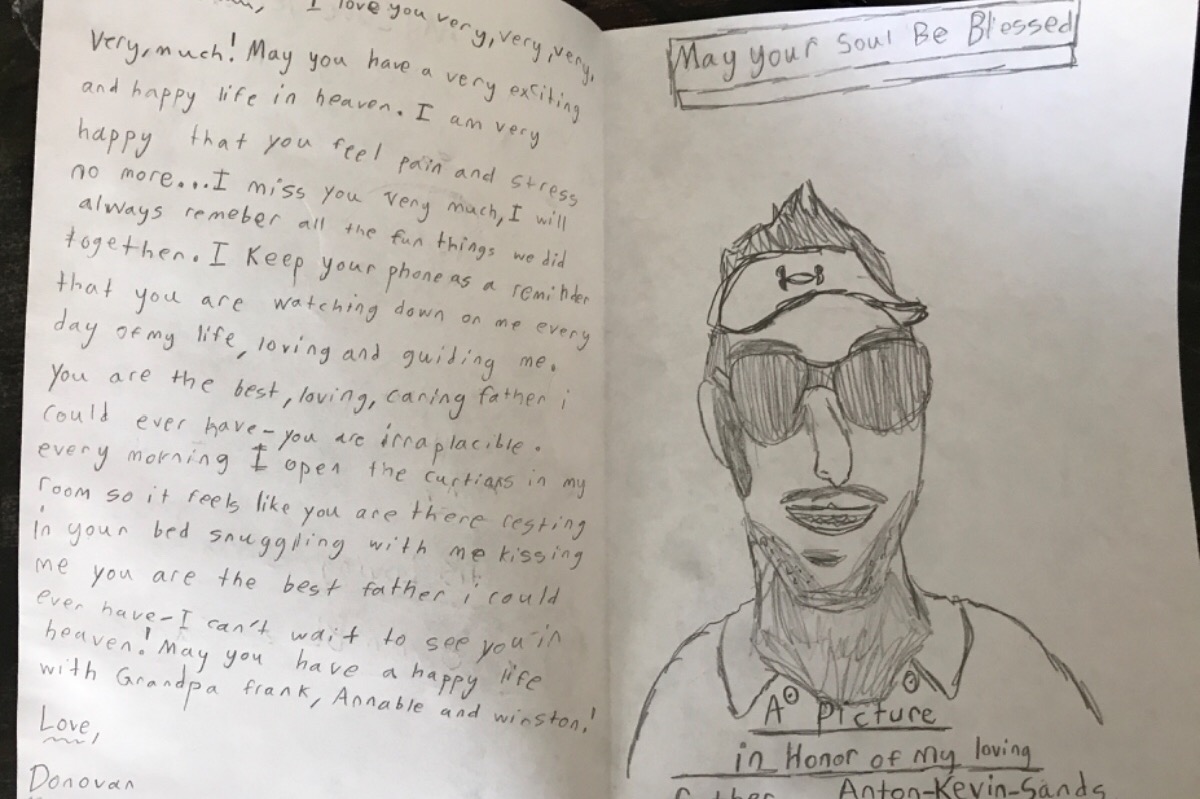 I love you very, very, very,
Very, much! May you have a very exciting
and happy life in heaven. I am very
happy that you feel pain and stress
no more...I miss you very much, I will
always remeber all the fun things we did
together. I Keep your phone as a reminder
that you are watching down on me every
day of my life, loving and guiding me.
You are the best, loving, caring father i
could ever have-you are irraplacible.
every morning I open the curtians in my
room so it feels like you are there resting
in your bed snuggling with me kissing
me you are the best father i could
ever have-I can't wait to see you in
heaven! May you have a happy life
with Grandpa frank, Annable and winston!
Love,
Donovan
May your Soul Be Blessed
A Picture
in Honor of My loving
father Anton-Kevin-Sands